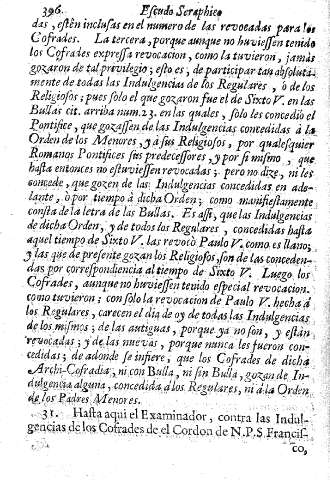 396. Escudo Seraphico
das, estèn inclusas en el numero de las revocadas para los
Cofrades. La tercera, porque aunque no huviessen tenido
los Cofrades expressa revocacion, como la tuvieron, jamàs
gozaron de tal previlegio; esto es, de participar tan absoluta-
mente de todas las Indulgencias de los Regulares, ò de los
Religiosos; pues solo el que gozaron fue el de Sixto V. en las
Bullas cit. arriba num. 23. en las quales, solo les concediò el
Pontifice, que gozassen de las Indulgencias concedidas à la
Orden de los Menores, y à sus Religiosos, por qualesquier
Romanos Pontifices sus predecessores, y por si mismo, que
hasta entonces no estuviessen revocadas; pero no dize, ni les
concede, que gozen de las Indulgencias concedidas en ade-
lante, ò por tiempo à dicha Orden; como manifiestamente
consta de la letra de las Bullas. Es assi, que las Indulgencias
de dicha Orden, y de todos los Regulares, concedidas hasta
aquel tiempo de Sixto V. las revocò Paulo V. como es llano;
y las que de presente gozan los Religiosos, son de las conceden-
das por correspondiencia al tiempo de Sixto V. Luego los
Cofrades, aunque no huviessen tenido especial revocacion,
como tuvieron; con sòlo la revocacion de Paulo V. hecha à
los Regulares, carecen el dia de oy de todas las Indulgencias
de los mismos; de las antiguas, porque ya no son, y estàn
revocadas; y de las nuevas, porque nunca les fueron con-
cedidas; de adonde se infiere, que los Cofrades de dicha
Archi-Cofradia, ni con Bulla, ni sin Bulla, gozan de In-
dulgencia alguna, concedida à los Regulares, ni à la Orden
de los Padres Menores.
31. Hasta aqui el Examinador, contra las Indul-
gencias de los Cofrades de el Cordon de N.P.S. Francis-
co,